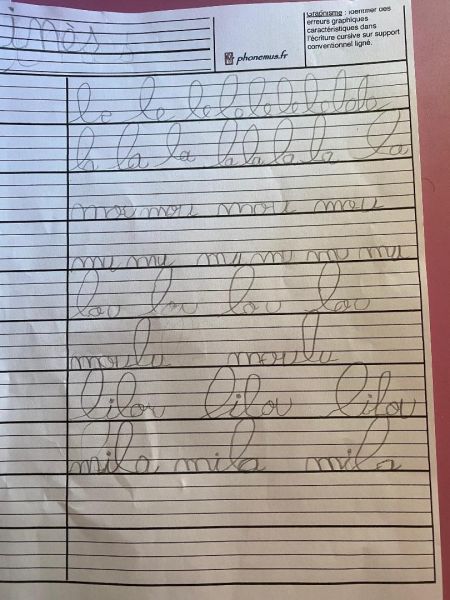 inès
Graphisme : identifier des
erreurs graphiques
caractéristiques dans
l'écriture cursive sur support
conventionnel ligné.
phonemus.fr
le le le le le le le le le
la la la la la la la la
mou mou mou mou
mu mu mu mu mu mu
lou lou lou lou
moulu moulu
lilou lilou lilou
mila mila mila